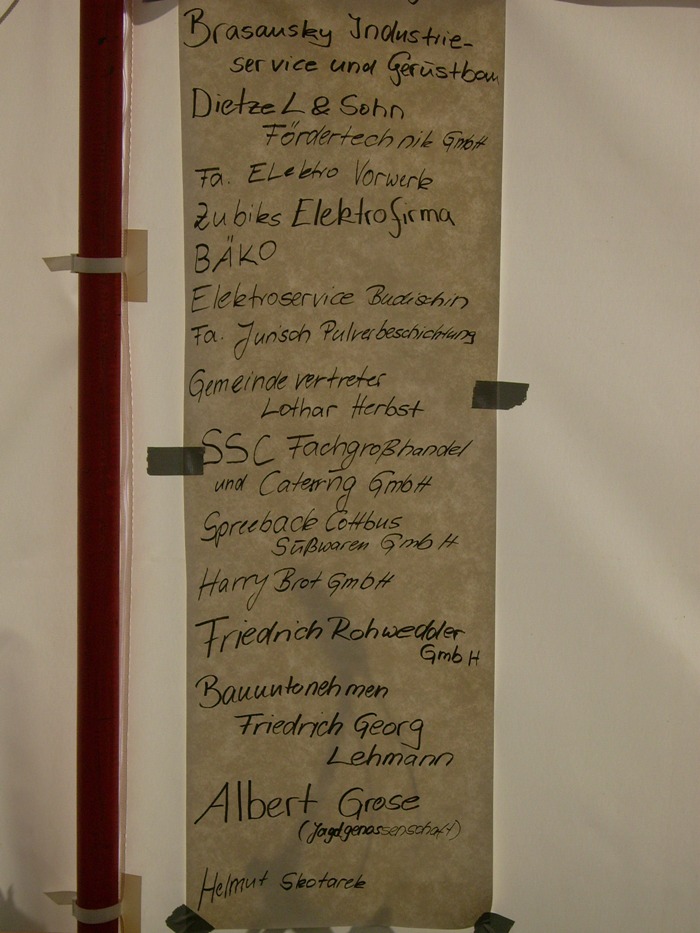 Brasansky Industrie-
service und Gerüstbau
Dietzel & Sohn
Fördertechnik GmbH
Fa. Elektro Vorwerk
Zubiks Elektrofirma
BÄKO
Elektroservice Budischin
Fa. Jurisch Pulverbeschichtung
Gemeindevertreter
Lothar Herbst
SSC Fachgroßhandel
und Catering GmbH
Spreeback Cottbus
Süßwaren GmbH
Harry Brot GmbH
Friedrich Rohwedder
GmbH
Bauuntenehmen
Friedrich Georg
Lehmann
Albert Grose
(Jagdgenossenschaft)
Helmut Skotarek